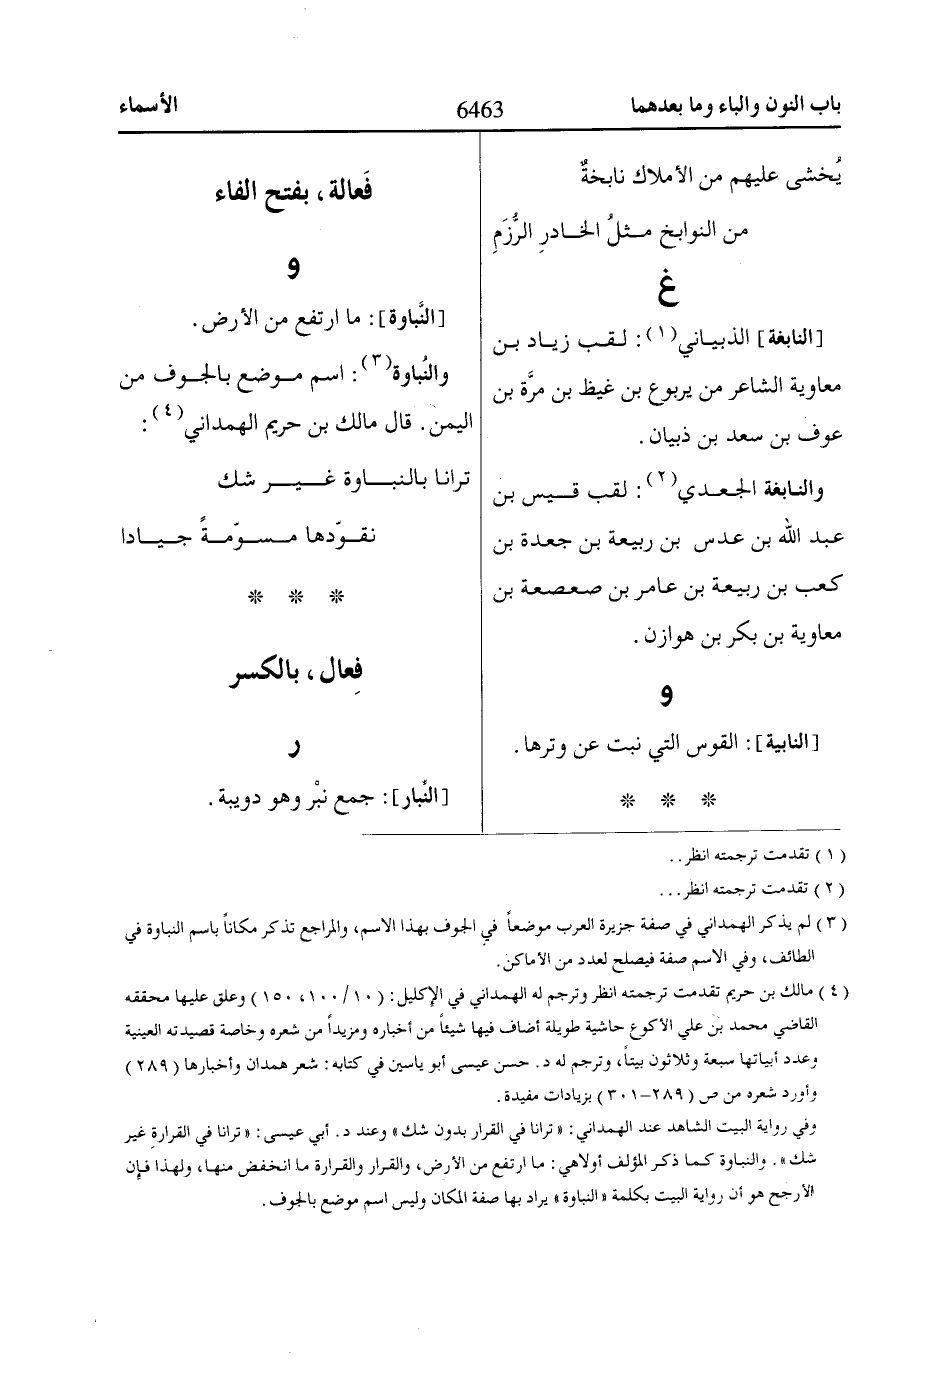 باب النون والباء وما بعدهما
6463
الأسماء
يُخشى عليهم من الأملاك نابخةٌ
من النوابخ مثلُ الخادرِ الرُّزَمِ
غ
[النابغة] الذبياني(١): لقب زياد بن
معاوية الشاعر من يربوع بن غيظ بن مرَّة بن
عوف بن سعد بن ذبيان.
والنابغة الجعدي(٢): لقب قيس بن
عبد الله بن عدس بن ربيعة بن جعدة بن
كعب بن ربيعة بن عامر بن صعصعة بن
معاوية بن بكر بن هوازن.
و
[النابية]: القوس التي نبت عن وترها.
* * *
فَعالة، بفتح الفاء
و
[النَّباوة]: ما ارتفع من الأرض.
والنُباوة(٣): اسم موضع بالجوف من
اليمن. قال مالك بن حريم الهمداني(٤):
ترانا بالنباوة غير شك
نقوّدها مسوّمةً جيادا
* * *
فِعال، بالكسر
ر
[النِّبار]: جمع نبْر وهو دويبة.
(١) تقدمت ترجمته انظر..
(٢) تقدمت ترجمته انظر...
(٣) لم يذكر الهمداني في صفة جزيرة العرب موضعاً في الجوف بهذا الاسم، والمراجع تذكر مكاناً باسم النباوة في
الطائف، وفي الاسم صفة فيصلح لعدد من الأماكن.
(٤) مالك بن حريم تقدمت ترجمته انظر وترجم له الهمداني في الإكليل: (١٠/١٠٠، ١٥٠) وعلق عليها محققه
القاضي محمد بن علي الأكوع حاشية طويلة أضاف فيها شيئاً من أخباره ومزيداً من شعره وخاصة قصيدته العينية
وعدد أبياتها سبعة وثلاثون بيتاً، وترجم له د. حسن عيسى أبو ياسين في كتابه: شعر همدان وأخبارها (٢٨٩)
وأورد شعره من ص (٢٨٩-٣٠١) بزيادات مفيدة.
وفي رواية البيت الشاهد عند الهمداني: «ترانا في القرار بدون شك» وعند د. أبي عيسى: «ترانا في القرارة غير
شك». والنباوة كما ذكر المؤلف أولاهي: ما ارتفع من الأرض، والقرار والقرارة ما انخفض منها، ولهذا فإن
الأرجح هو أن رواية البيت بكلمة «النباوة» يراد بها صفة المكان وليس اسم موضع بالجوف.